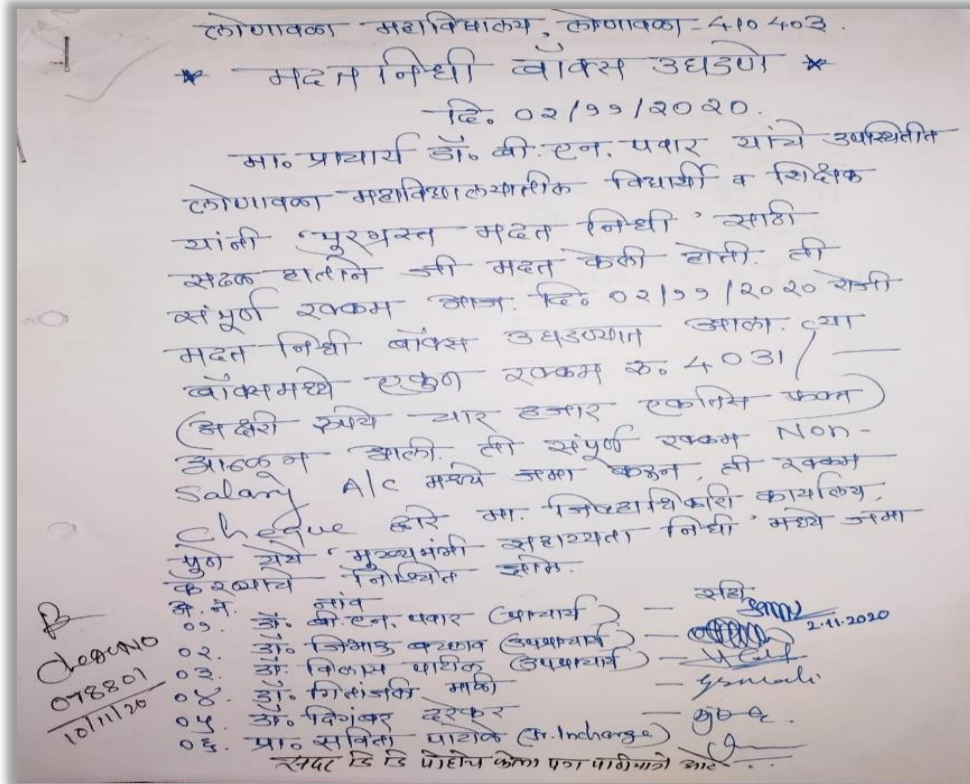 लोणावळा महाविद्यालय, लोणावळा - 410 403.
* मदत निधी बॉक्स उघडणे *
दि. ०२/११/२०२०.
मा. प्राचार्य डॉ. बी. एन. पवार यांचे उपस्थितीत
लोणावळा महाविद्यालयातील विद्यार्थी व शिक्षक
यांनी 'पूरग्रस्त मदत निधी' साठी
सढळ हाताने जी मदत केली होती. ती
संपूर्ण रक्कम आज. दि. ०२/११/२०२० रोजी
मदत निधी बॉक्स उघडण्यात आला. त्या
बॉक्समध्ये एकुण रक्कम रु. 4031/—
(अक्षरी रुपये चार हजार एकतिस फक्त)
आढळून आली. ती संपूर्ण रक्कम Non-
Salary A/c मध्ये जमा करून, ती रक्कम
Cheque द्वारे मा. जिल्हाधिकारी कार्यालय,
पुणे येथे 'मुख्यमंत्री सहाय्यता निधी' मध्ये जमा
करण्याचे निश्चित झाले.
अ. नं. नांव सही
०१. डॉ. बी. एन. पवार (प्राचार्य) — 2.11.2020
०२. डॉ. जिभाऊ बच्छाव (उपप्राचार्य) —
०३. डॉ. विकास पाटील (उपप्राचार्य) —
०४. डॉ. गितांजली माळी —
०५. डॉ. दिगंबर दरेकर —
०६. प्रा. सविता पाटोळे (Jr. Incharge) —
सदर डि डि पोहोच केला पत्र पाठीमागे आहे
Cheque NO
078801
10/11/20